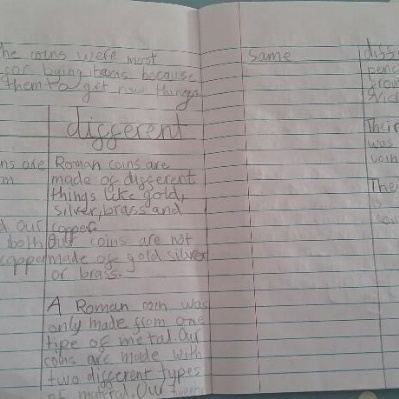 he coins were most
for buying items because
them to get new things
different
ns are
m
d our
both
copper
Roman coins are
made of different
things like gold,
silver, brass and
copper
Our coins are not
made of gold silver
or brass.
A Roman coin was
only made from one
type of metal. Our
coins are made with
two different types
of material. Our
Same
diffe
Their
was